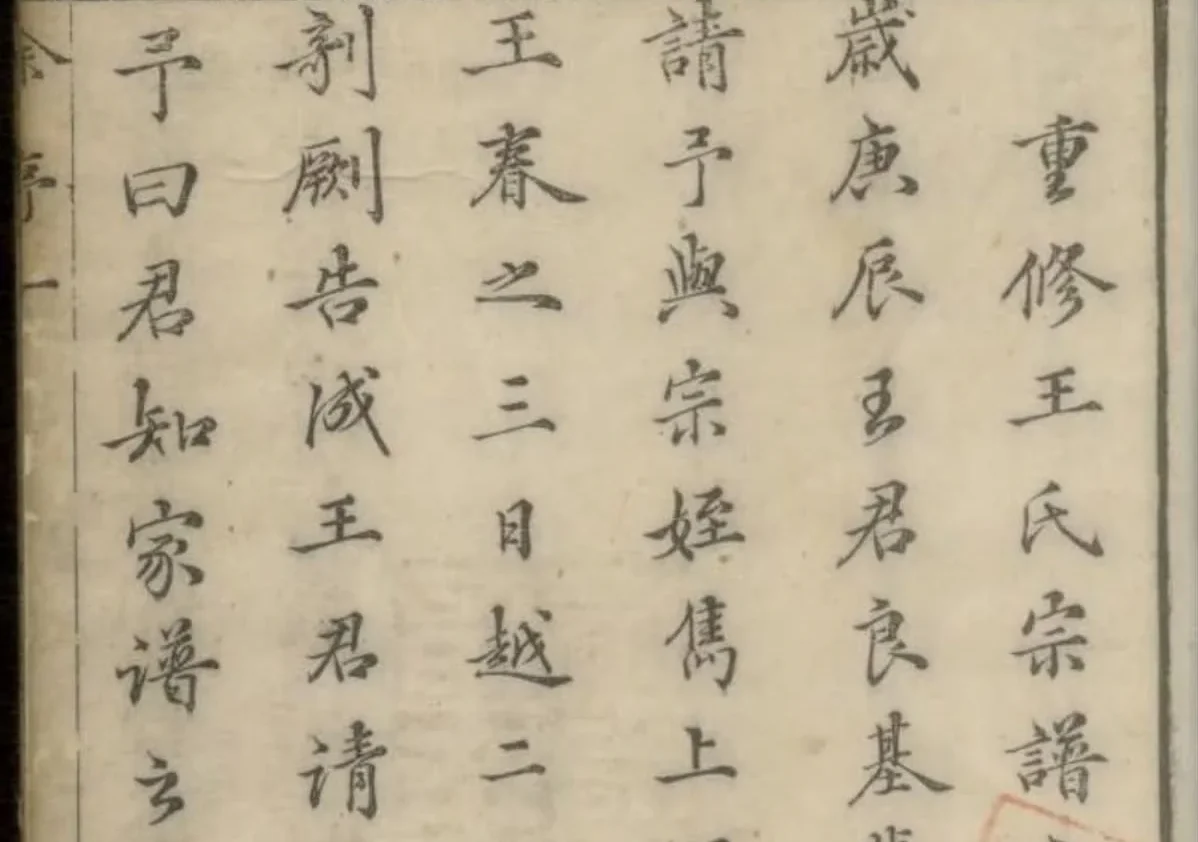 重修王氏宗譜
歲庚辰王君良基
請予與宗姪雋上
王春之三日越二
剞劂告成王君请
予曰君知家譜之
序一